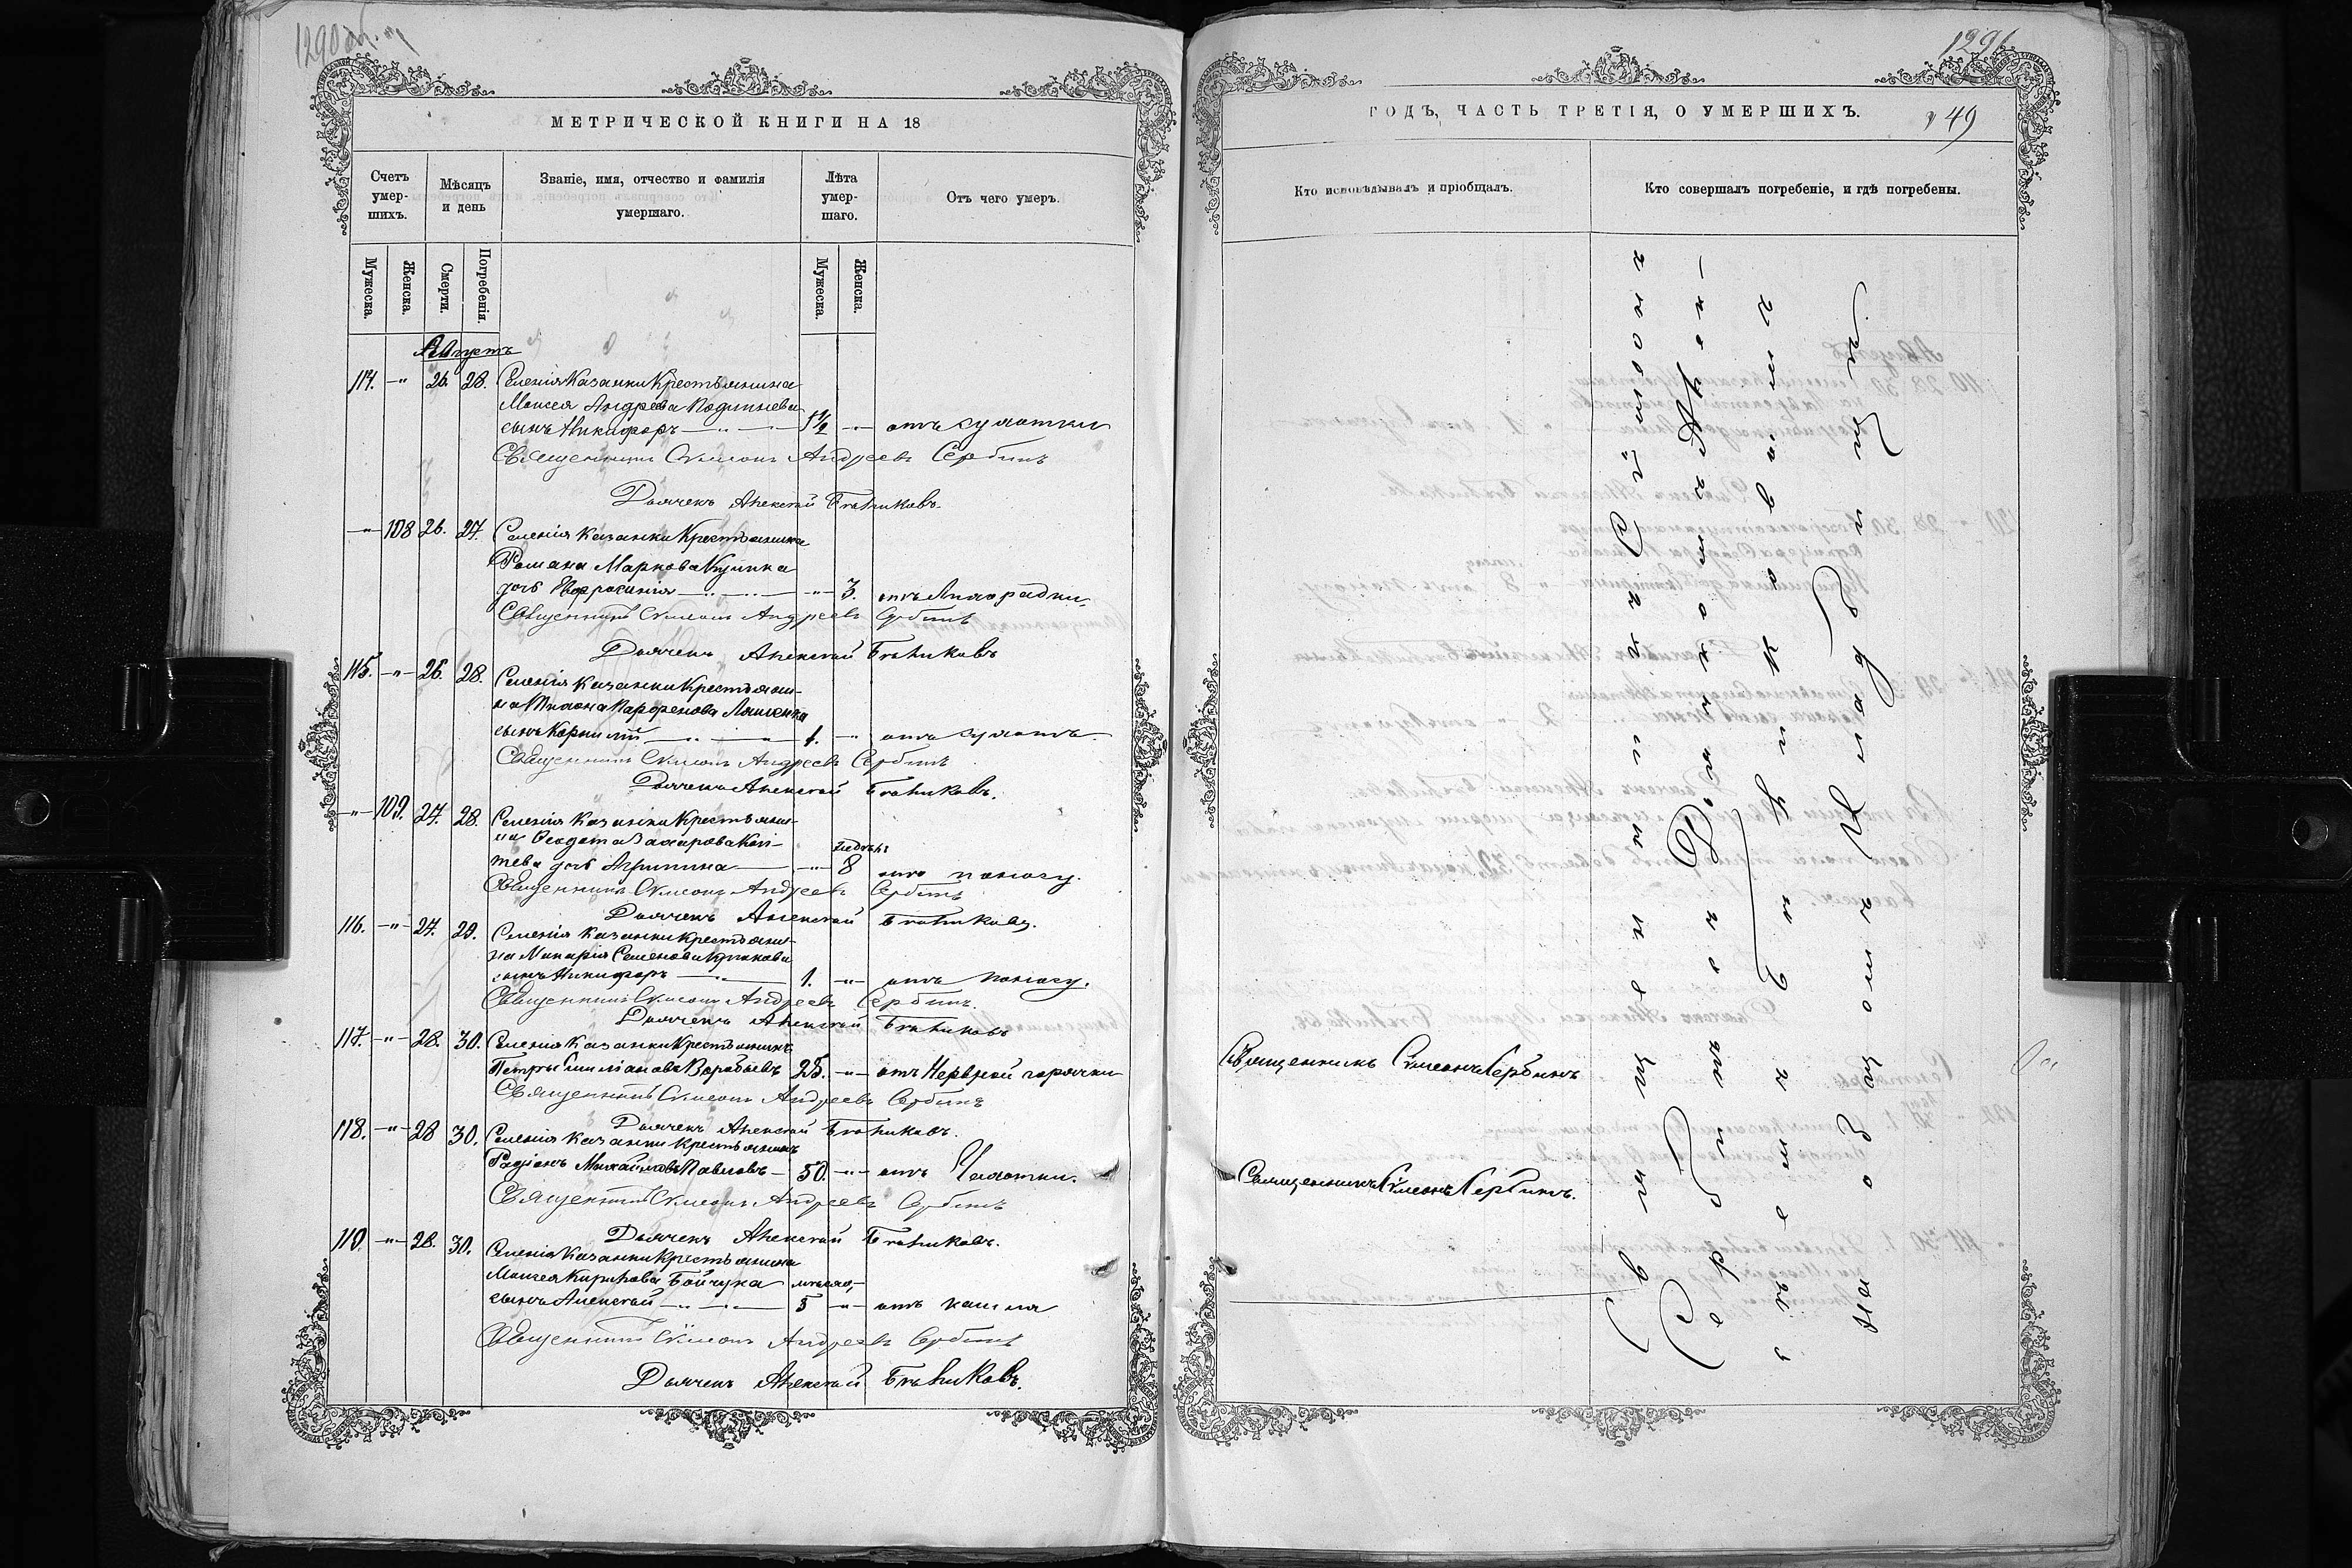 1290 об.
МЕТРИЧЕСКОЙ КНИГИ НА 18
Счетъ умер-шихъ.
Мѣсяцъ и день
Званіе, имя, отчество и фамилія умершаго.
Лѣта умер-шаго.
Отъ чего умеръ.
Мужеска.
Женска.
Смерти.
Погребенія.
Мужеска.
Женска.
Августъ
114. -"- 26. 28. Селенія Казанки Крестьянина
Моисея Андреева
сынъ Никифоръ 1½ -"- отъ сухотки
Священникъ Сѵмеонъ Андреевъ Сербинъ
Дьячекъ Алексѣй
-"- 108 26. 27. Селенія Казанки Крестьянина
Романа Маркова
дочь Евфросинія -"- 3. отъ Лихорадки.
Священникъ Сѵмеонъ Андреевъ Сербинъ
Дьячекъ Алексѣй
115. -"- 26. 28. Селенія Казанки Крестьяни-
на Парфенова Ляшенка
сынъ Корнилій 1. -"- отъ сухотъ.
Священникъ Сѵмеонъ Андреевъ Сербинъ
Дьячекъ Алексѣй
-"- 109. 27. 28. Селенія Казанки Крестьяни-
на Ѳеодота Захарова Коп-
недѣль
тева дочь Агрипина -"- 8 отъ поносу.
Священникъ Сѵмеонъ Андреевъ Сербинъ
Дьячекъ Алексѣй
116. -"- 27. 29. Селенія Казанки Крестьяни-
на Макарія Семенова
сынъ Никифоръ 1. -"- отъ поносу.
Священникъ Сѵмеонъ Андреевъ Сербинъ.
Дьячекъ Алексѣй
117. -"- 28. 30. Селенія Казанки Крестьянинъ
Петръ Воробьевъ 25. -"- отъ Нервной горячки
Священникъ Сѵмеонъ Андреевъ Сербинъ
Дьячекъ Алексѣй
118. -"- 28 30. Селенія Казанки Крестьянинъ
Радіонъ Михайловъ Павловъ 50. -"- отъ Чахотки.
Священникъ Сѵмеонъ Андреевъ Сербинъ
Дьячекъ Алексѣй
119. -"- 28. 30. Селенія Казанки Крестьянина
Моисея Кирилова Бойчука мѣсяц.
сынъ Алексѣй 5 -"- отъ кашля
Священникъ Сѵмеонъ Андреевъ Сербинъ
Дьячекъ Алексѣй
1291
ГОДЪ, ЧАСТЬ ТРЕТІЯ, О УМЕРШИХЪ.
49
Кто исповѣдывалъ и пріобщалъ.
Кто совершалъ погребеніе, и гдѣ погребены.
Священникъ Сѵмеонъ Сербинъ
Священникъ Сѵмеонъ Сербинъ.
Священникъ Сѵмеонъ
Сербинъ съ Дьячкомъ Алек-
сѣемъ
на общемъ кладбищѣ.